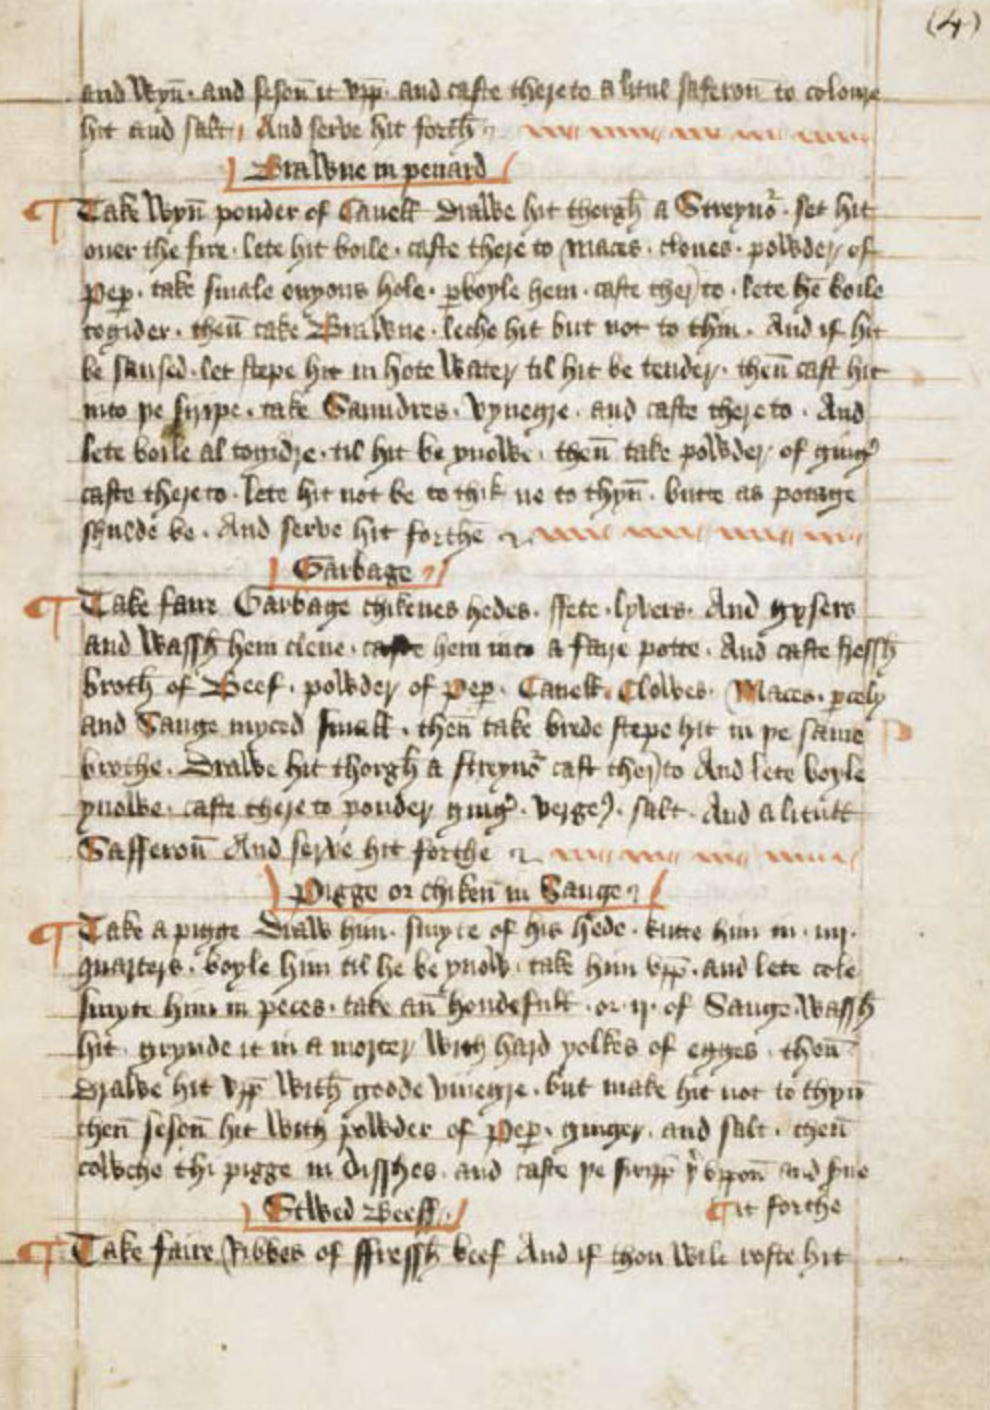 (4)
and Wyn̄ · and seson̄ it vpp̄ · and caste there to a litul saferon̄ to coloure
hit and salt · And serve hit forth̄
Brawne in peuard
¶ Take Wyn̄ pouder of Canell Drawe hit thorgh̄ a Streynor̉ · set hit
ouer the fire · lete hit boile · caste there to Maces · cloues · powder of
Peꝑ · take smale onyons hole · ꝑboyle hem · caste ther to · lete hē boile
togider · then̄ take Brawne · leche hit but not to thin · And if hit
be saused · let stepe hit in hote Water til hit be tender · then̄ cast hit
into þe siripe · take Saundres · Vynegre · and caste there to · And
lete boile al togidre · til hit be ynowe · then̄ take powder of ging̉
caste there to · lete hit not be to thik ne to thyn̄ · butte as potage
shulde be · And serve hit forthe
Garbage
¶ Take faire Garbage chikenes hedes · ffete · lyvers · And gysers
and Wassh̄ hem clene · caste hem into a faire potte · And caste fressh̄
broth̄ of Beef · powder of Peꝑ · Canell · Clowes · Maces · ꝑcely
and Sauge myced small · then̄ take brede stepe hit in þe same
brothe · Drawe hit thorgh̄ a streynor̉ cast ther to And lete boyle
ynowe · caste there to pouder ging̉ · vergeꝭ · salt · And a litull
Safferon̄ And serve hit forthe
Pigge or chiken̄ in Sauge
¶ Take a pigge Draw him · smyte of his hede · kutte him in · iiij ·
quarters · boyle him til he be ynow · take him vpp̄ · and lete cole
smyte him in peces · take an̄ hondefull · or · ij · of Sauge · Wassh̄
hit · grynde it in a morter With̄ hard yolkes of egges · then̄
drawe hit vpp̄ With̄ goode vinegre · but make hit not to thyn̄
then̄ seson̄ hit With̄ powder of Peꝑ · ginger · and salt · then̄
cowche thi pigge in disshes · and caste þe siripp̄ þ̉ vppon̄ and s̉ue
¶ it forthe
Stwed Beeff
¶ Take faire Ribbes of ffressh̄ beef And if thou wilt roste hit